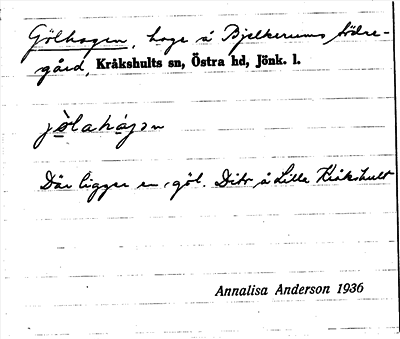 Gölhagen, hage å Bjelkerums södre-
gård, Kråkshults sn, Östra hd, Jönk. l.
jòlahájən
Där ligger en göl. Dito å Lilla Kråkshult
Annalisa Anderson 1936